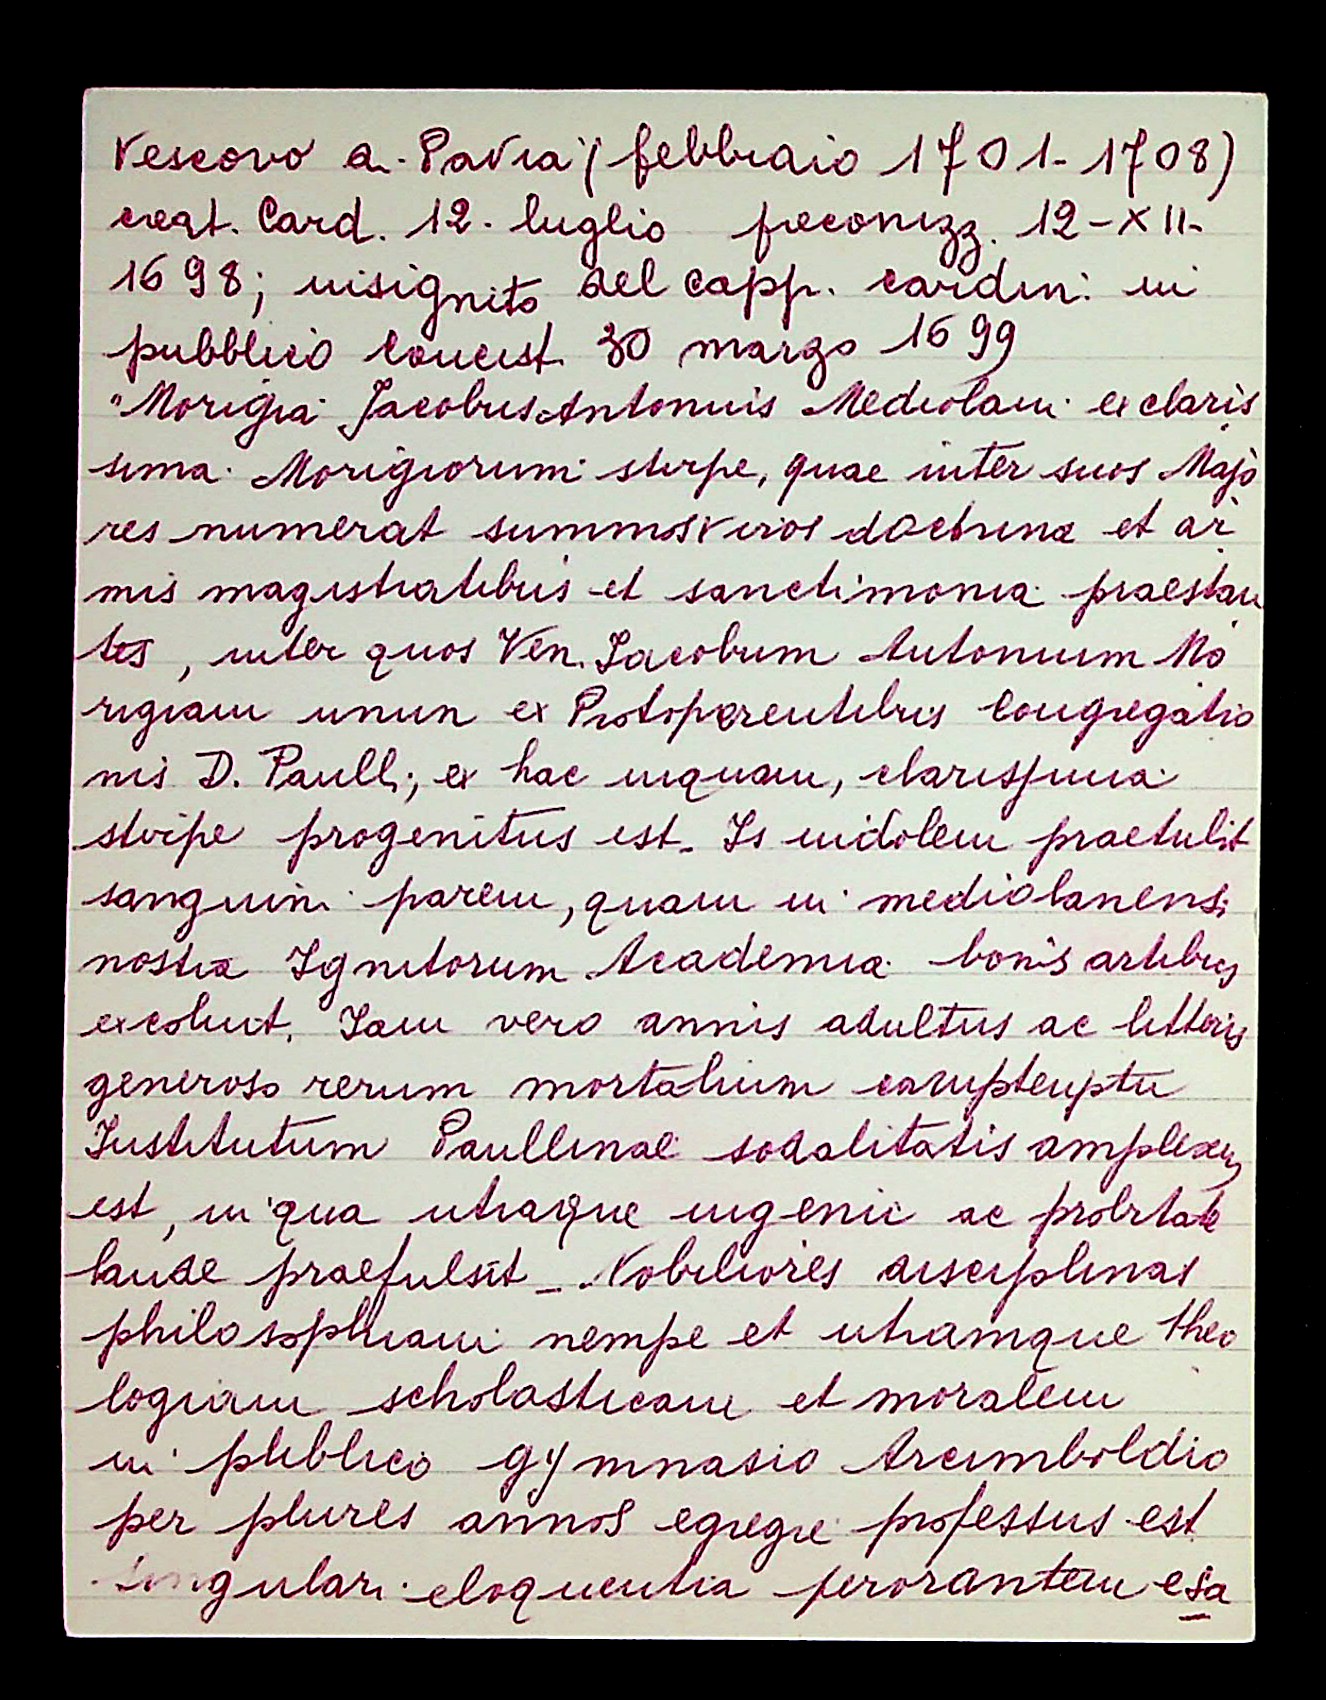 Vescovo a Pavia (febbraio 1701-1708)
creat. Card. 12. luglio preconizz. 12-XII-
1698; insignito del capp. cardin. in
pubblico concist. 30 marzo 1699
"Morigia Jacobus Antonius Mediolani ex claris
sima Morigiorum stirpe, quae inter suos Majo
res numerat summos viros doctrina et ar
mis magistratibus et sanctimonia praestan
tes, inter quos Ven. Jacobum Antonium Mo
rigiam unun ex Protoparentibus Congregatio
nis D. Paulli; ex hac inquam, clarissima
stirpe progenitus est. Is indolem praetulit
sanguini parem, quam in mediolanensi
nostra Ignitorum Academia bonis artibus
excoluit. Iam vero annis adultus ac litteris
generoso rerum mortalium
Institutum Paullinae sodalitatis amplexus
est, in qua utraque ingenii ac probitate
laude praefulsit. Nobiliores disciplinas
philosophiam nempe et utramque theo
logiam scholasticam et moralem
in publico gymnasio Arcimboldio
per plures annos egregie professus est
singulari eloquentia perorantem esa